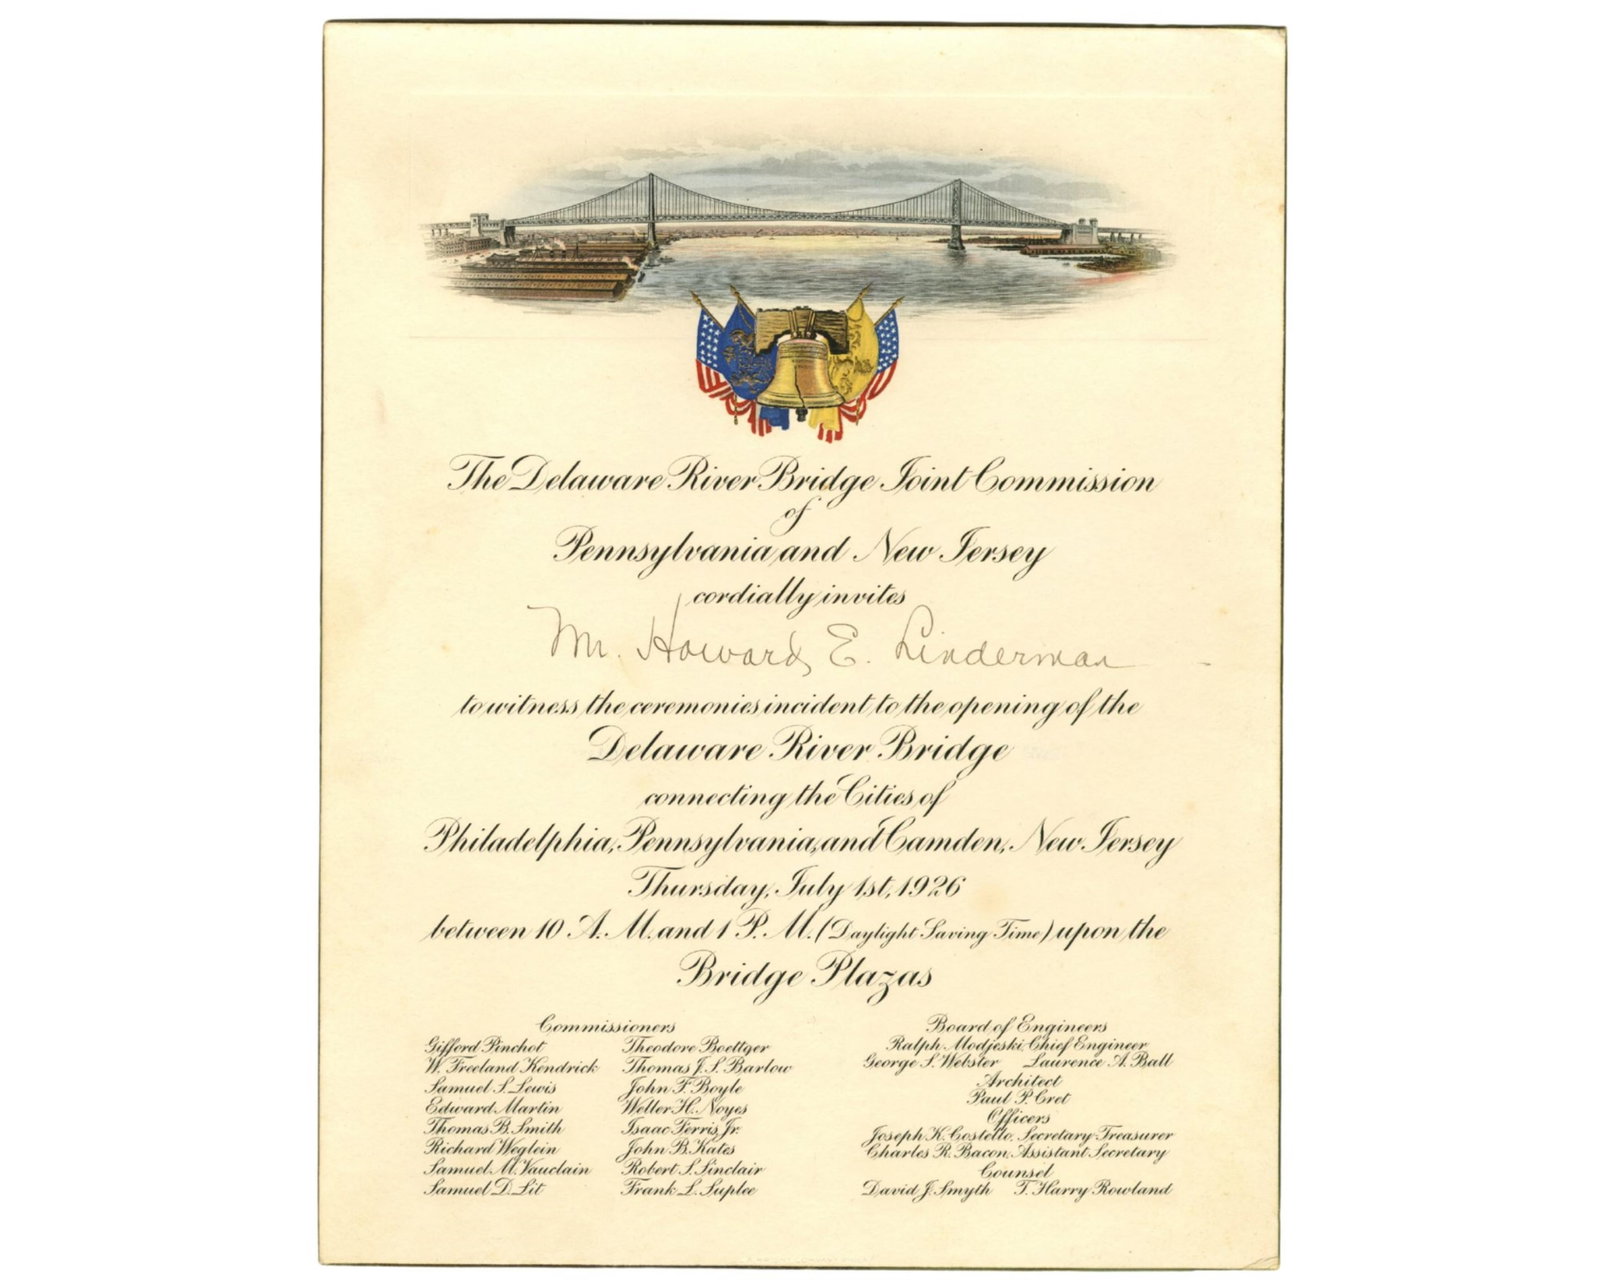 The Delaware River Bridge Joint Commission
of
Pennsylvania and New Jersey
cordially invites
Mr. Howard E. Linderman
to witness the ceremonies incident to the opening of the
Delaware River Bridge
connecting the Cities of
Philadelphia, Pennsylvania, and Camden, New Jersey
Thursday, July 1st, 1926
between 10 A. M. and 1 P. M. (Daylight Saving Time) upon the
Bridge Plazas
Commissioners
Gifford Pinchot Theodore Boettger
W. Freeland Kendrick Thomas J. S. Barlow
Samuel S. Lewis John F. Boyle
Edward Martin Weller H. Noyes
Thomas B. Smith Isaac Ferris, Jr.
Richard Weglein John B. Kates
Samuel M. Vauclain Robert S. Sinclair
Samuel D. Lit Frank L. Suplee
Board of Engineers
Ralph Modjeski, Chief Engineer
George S. Webster Laurence A. Ball
Architect
Paul P. Cret
Officers
Joseph K. Costello, Secretary-Treasurer
Charles R. Bacon, Assistant Secretary
Counsel
David J. Smyth T. Harry Rowland